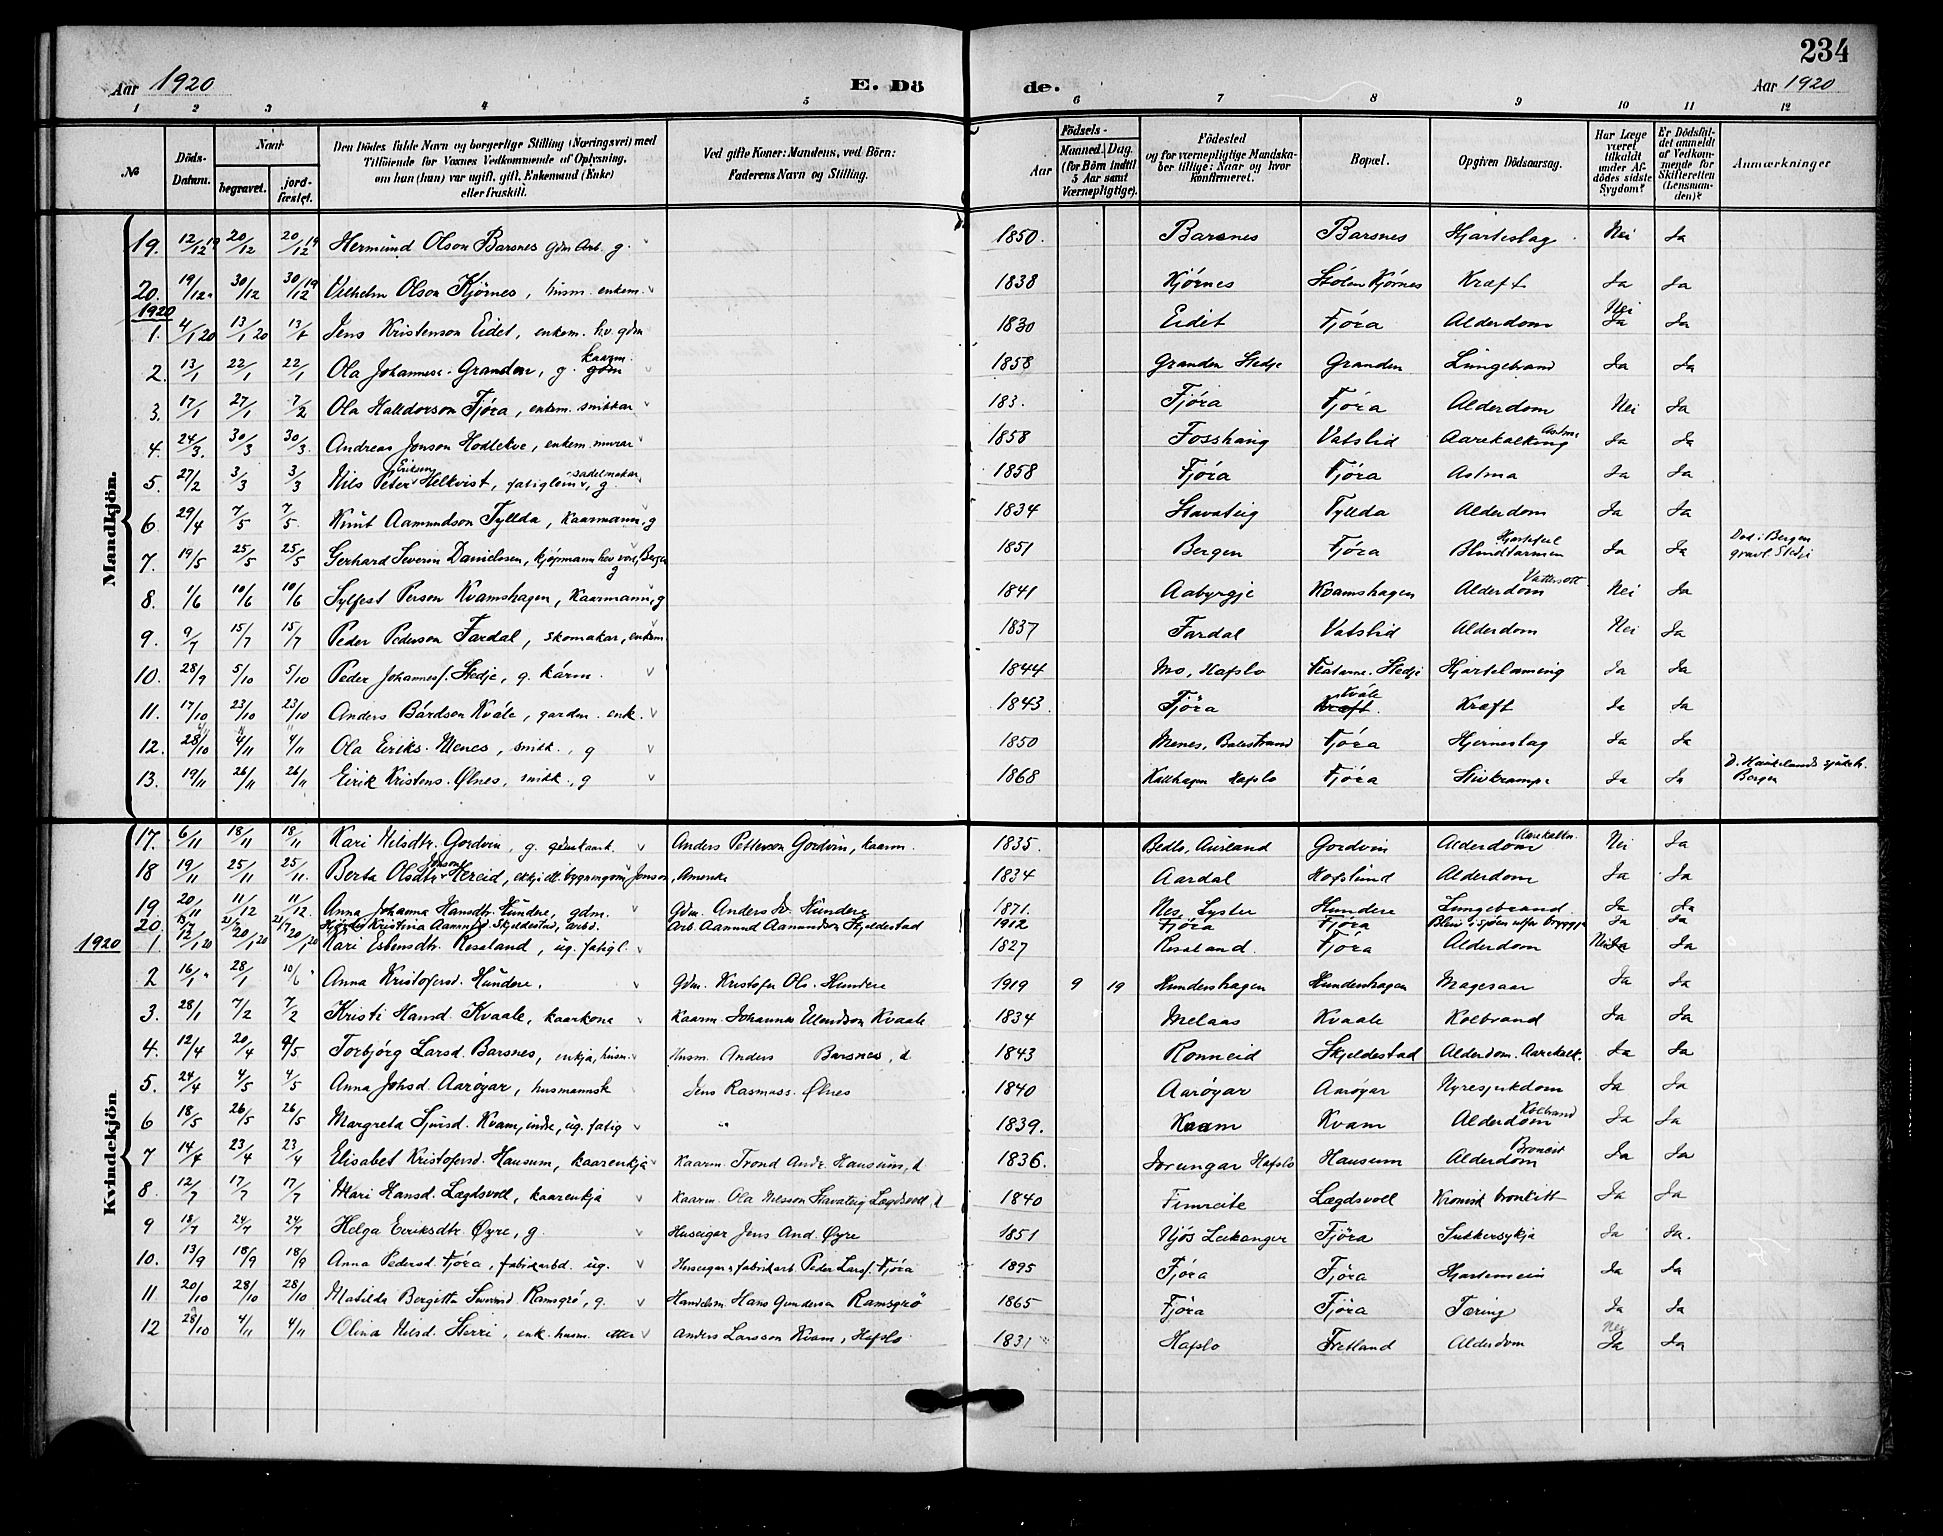 234
Aar 1920 E. Dö de. Aar 1920
1 2 3 4 5 6 7 8 9 10 11 12
№ Döds-Datum. Naar begravet. jord-fæstet. Den Dödes fulde Navn og borgerlige Stilling (Næringsvei) med Tilföiende for Voxnes Vedkommende af Oplysning, om han (hun) var ugift, gift, Enkemand (Enke) eller fraskilt. Ved gifte Koner: Mandens, ved Börn: Faderens Navn og Stilling. Aar Födsels- Maaned. Dag. (for Börn indtil 5 Aar samt Værnepligtige). Födested og for værnepligtige Mandska-ber tillige: Naar og hvor konfirmeret. Bopæl. Opgiven Dödsaarsag. Har Læge været tilkaldt under Af-dödes sidste Sygdom? Er Dödsfal-det anmeldt af Vedkom-mende for Skifteretten (Lensman-den)? Anmærkninger
Mandkjön.
19. 12/12 19 20/12 20/12 19 Hermund Olson Barsnes gdm Arb. g. 1850. Barsnes Barsnes Hjarteslag Nei Ja
20. 19/12 30/12 30/12 19 Vilhelm Olson Kjörnes, husm. enkem. 1838 Kjörnes Stölen Kjörnes Kræft Ja Ja
1920
1. 4/1 20 13/1 20 13/1 Jens Kristenson Eidet, enkem. hv. gdm 1830 Eidet Fjöra Alderdom Nei Ja Ja
2. 13/1 22/1 22/1 Ola Johannesr. Granden, g. kaarm. gdm 1858 Granden Stedje Granden Lungebrand Ja Ja
3. 17/1 27/1 7/2 Ola Halldorson Fjöra, enkem. snikkar 183. Fjöra Fjöra Alderdom Nei Ja
4. 24/3 30/3 30/3 Andreas Jonson Hodlekve, enkem. murar 1858 Fosshaug Vatslid Aarekalking Astma Ja Ja
5. 27/2 3/3 3/3 Nils Peter Eriksen Helkvist, fatiglem, sadelmakar g. 1858 Fjöra Fjöra Astma Ja Ja
6. 29/4 7/5 7/5 Knut Aamundson Tyllda, Kaarmann, g 1834 Stavateig Tyllda Alderdom Ja Ja
7. 19/5 25/5 25/5 Gerhard Severin Danielssen, kjöpmann hev vore i Bergen g 1851 Bergen Fjöra Hjartefeil Blindtarmen Ja Ja Död i Bergen gravl. Stedje
8. 1/6 10/6 10/6 Sylfest Person Kvamshagen, Kaarmann, g 1841 Aabyrgje Kvamshagen Alderdom Vattersott Nei Ja
9. 9/7 15/7 15/7 Peder Pederson Fardal, skomakar, enkem 1837 Fardal Vatslid Alderdom Nei Ja
10. 28/9 5/10 5/10 Peder Johannesf. Stedje, g. kårm. 1844 Mo, Hafslo Stedje Hjartelamming Ja Ja
11. 17/10 23/10 23/10 Anders Bårdson Kvåle, gardm. enk. 1843 Fjöra Kræft. Kvåle Kræft Ja Ja
12. 28/10 4/11 4/11 Ola Eiriks. Menes, snikk., g 1850 Menes, Balestrand Fjöra Hjerneslag Ja Ja
13. 19/11 26/11 26/11 Eirik Kristens. Ølnes, snikk., g 1868 Kallhagen Hafslo Fjöra Stivkrampe Ja Ja D. Haukelands sjukeh. Bergen
Kvindekjön
17. 6/11 18/11 18/11 Kari Nilsdtr. Gordvin, g. Anders Petterson Gordvin, kaarm. 1835. Bedle, Aurland Gordvin Alderdom Aarekalkn. Nei Ja
18 19/11 25/11 25/11. Berta Olsdtr. Jonsons Hereid, ekkje bygningsm. Jonson, Amerika 1834 Aardal Hofslund Alderdom Ja Ja
19 20/11 11/12 11/12. Anna Johanna Hansdtr. Hundere, gdm. Gdm. Anders Hundere 1871. Nes, Lyster Hundere Lungebrand Ja Ja
20. 13/7 21/7 21/7 Kristina Aamund. Skjeldestad, arbd. Arb. Aamund Aamundson Skjeldestad 1912 Fjöra Fjöra Blev i sjöen utfor brygge Ja Ja
1920 1. 12/1 20 20/1 20 20/1 20 Kari Esbensdtr. Roseland, ug. fatigl. 1827 Roseland. Fjöra Alderdom Nei Ja Ja
2 16/1 28/1 10/6 Anna Kristofersd. Hundere. Gdm. Kristofer Ols. Hundere 1919 9 19 Hundershagen Hundershagen Magesaar Ja Ja
3. 28/1 7/2 7/2 Kristi Hansd. Kvaale, kaarkona Kaarm. Johannes Ellendson Kvaale 1834 Melaas Kvaale Kolbrand Ja Ja
4. 12/4 20/4 9/5 Torbjörg Larsd. Barsnes, enkja, husm. Husm. Anders Barsnes, d 1843 Ronneid Skjeldestad Alderdom. Aarekalk. Ja Ja
5. 24/4 4/5 4/5 Anna Johsd. Aaröyar, husmannsk Jens Rasmuss. Ølnes 1840 Aaröyar Aaröyar Nyresjukdom Ja Ja
6 18/5 26/5 26/5 Margreta Sjursd. Kvam, indre, ug. fatig " 1839. Kvam Kvam Alderdom Kolbrand Ja Ja
7 14/4 23/4 23/4 Elisabet Kristofersd. Hausum, kaarenkja Kaarm. Trond Andr. Hausum, d. 1836. Joranger Hafslo Hausum Alderdom Bronkit Ja Ja
8. 12/7 17/7 17/7 Mari Hansd. Lægdsvoll, kaarenkja Kaarm. Ola Nilsson Stavateig Lægdsvoll, d 1840 Fimreite Lægdsvoll Kronisk bronkitt Ja Ja
9 18/7 24/7 24/7 Helga Eiriksdtr. Øyre, g. Huseigar Jens And. Øyre 1851 Njös Leikanger Fjöra Sukkersykja Ja Ja.
10. 13/9 18/9 18/9 Anna Pedersd. Fjöra, fabrikarbd. ug. Huseigar, fabrikarb. Peder Larsf. Fjöra 1895 Fjöra Fjöra Hjartemein Ja Ja
11. 20/10 28/10 28/10 Matilda Bergitta Ramsgrö, g. Handelsm. Hans Gundersen Ramsgrö 1865 Fjöra Fjöra Tæring Ja Ja
12 28/10 4/11 4/11 Olina Nilsd. Sterri, enk. husm. etter Anders Larsson Kvam, Hafslo 1831 Hafslo Fretland Alderdom Nei Ja Ja